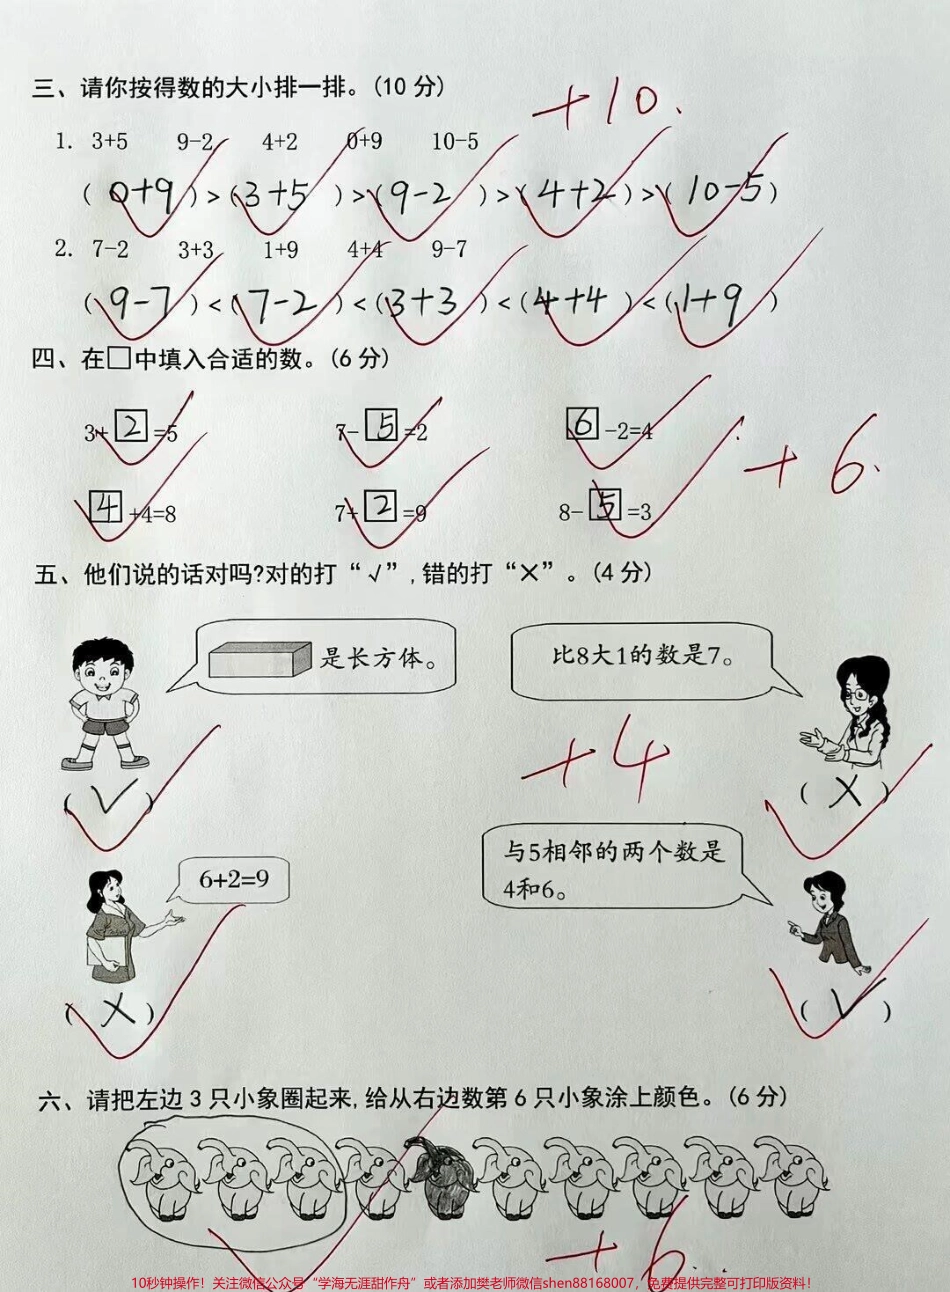 三、请你按得数的大小排一排。(10 分)
+10.
1. 3+5 9-2 4+2 0+9 10-5
( 0+9 )>( 3+5 )>( 9-2 )>( 4+2 )>( 10-5 )
2. 7-2 3+3 1+9 4+4 9-7
( 9-7 )<( 7-2 )<( 3+3 )<( 4+4 )<( 1+9 )
四、在□中填入合适的数。(6 分)
3+ 2 =5 7- 5 =2 6 -2=4
+6.
4 +4=8 7+ 2 =9 8- 5 =3
五、他们说的话对吗?对的打“√”,错的打“×”。(4 分)
是长方体。 比8大1的数是7。
+4
( √ ) ( × )
6+2=9 与5相邻的两个数是
4和6。
( × ) ( √ )
六、请把左边 3 只小象圈起来,给从右边数第 6 只小象涂上颜色。(6 分)
+6.
10秒钟操作！关注微信公众号“学海无涯甜作舟”或者添加樊老师微信shen88168007，免费提供完整可打印版资料！